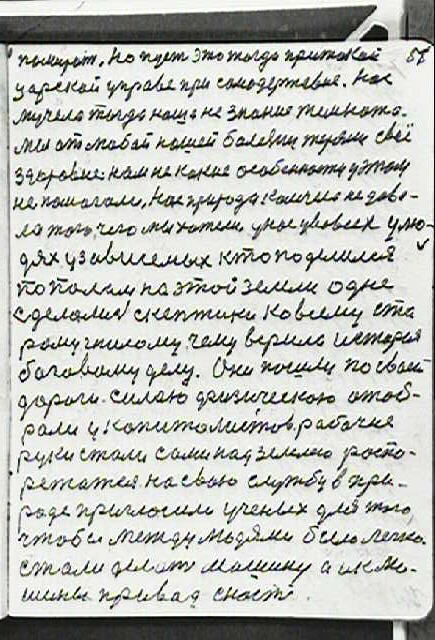 помират. Но пуст это тогда при такой 57
царской управе при самодержавие. Нас
мучела тогда наша не знание темнота.
Мы от любой нашей болезни теряли своё
здоровие нам не какие особенности в этом
не помогали, Нас природа конечно не дово-
ла того, чего мы хотели у нас у всех у лю-
дях узависемых кто поделился
пополам на этой земли одне
сделались скептики ковсему ста
рому гнилому, чему верила история
баговому делу. Они пошли по своей
дороги. силаю физическою отоб-
рали у капиталистов, рабочие
руки стали сами над землею роспо-
режатся на свою службу в при-
роде пригласили ученых для того
чтобы между людями было легко.
стали делат машину а их ма-
шины привад сност.